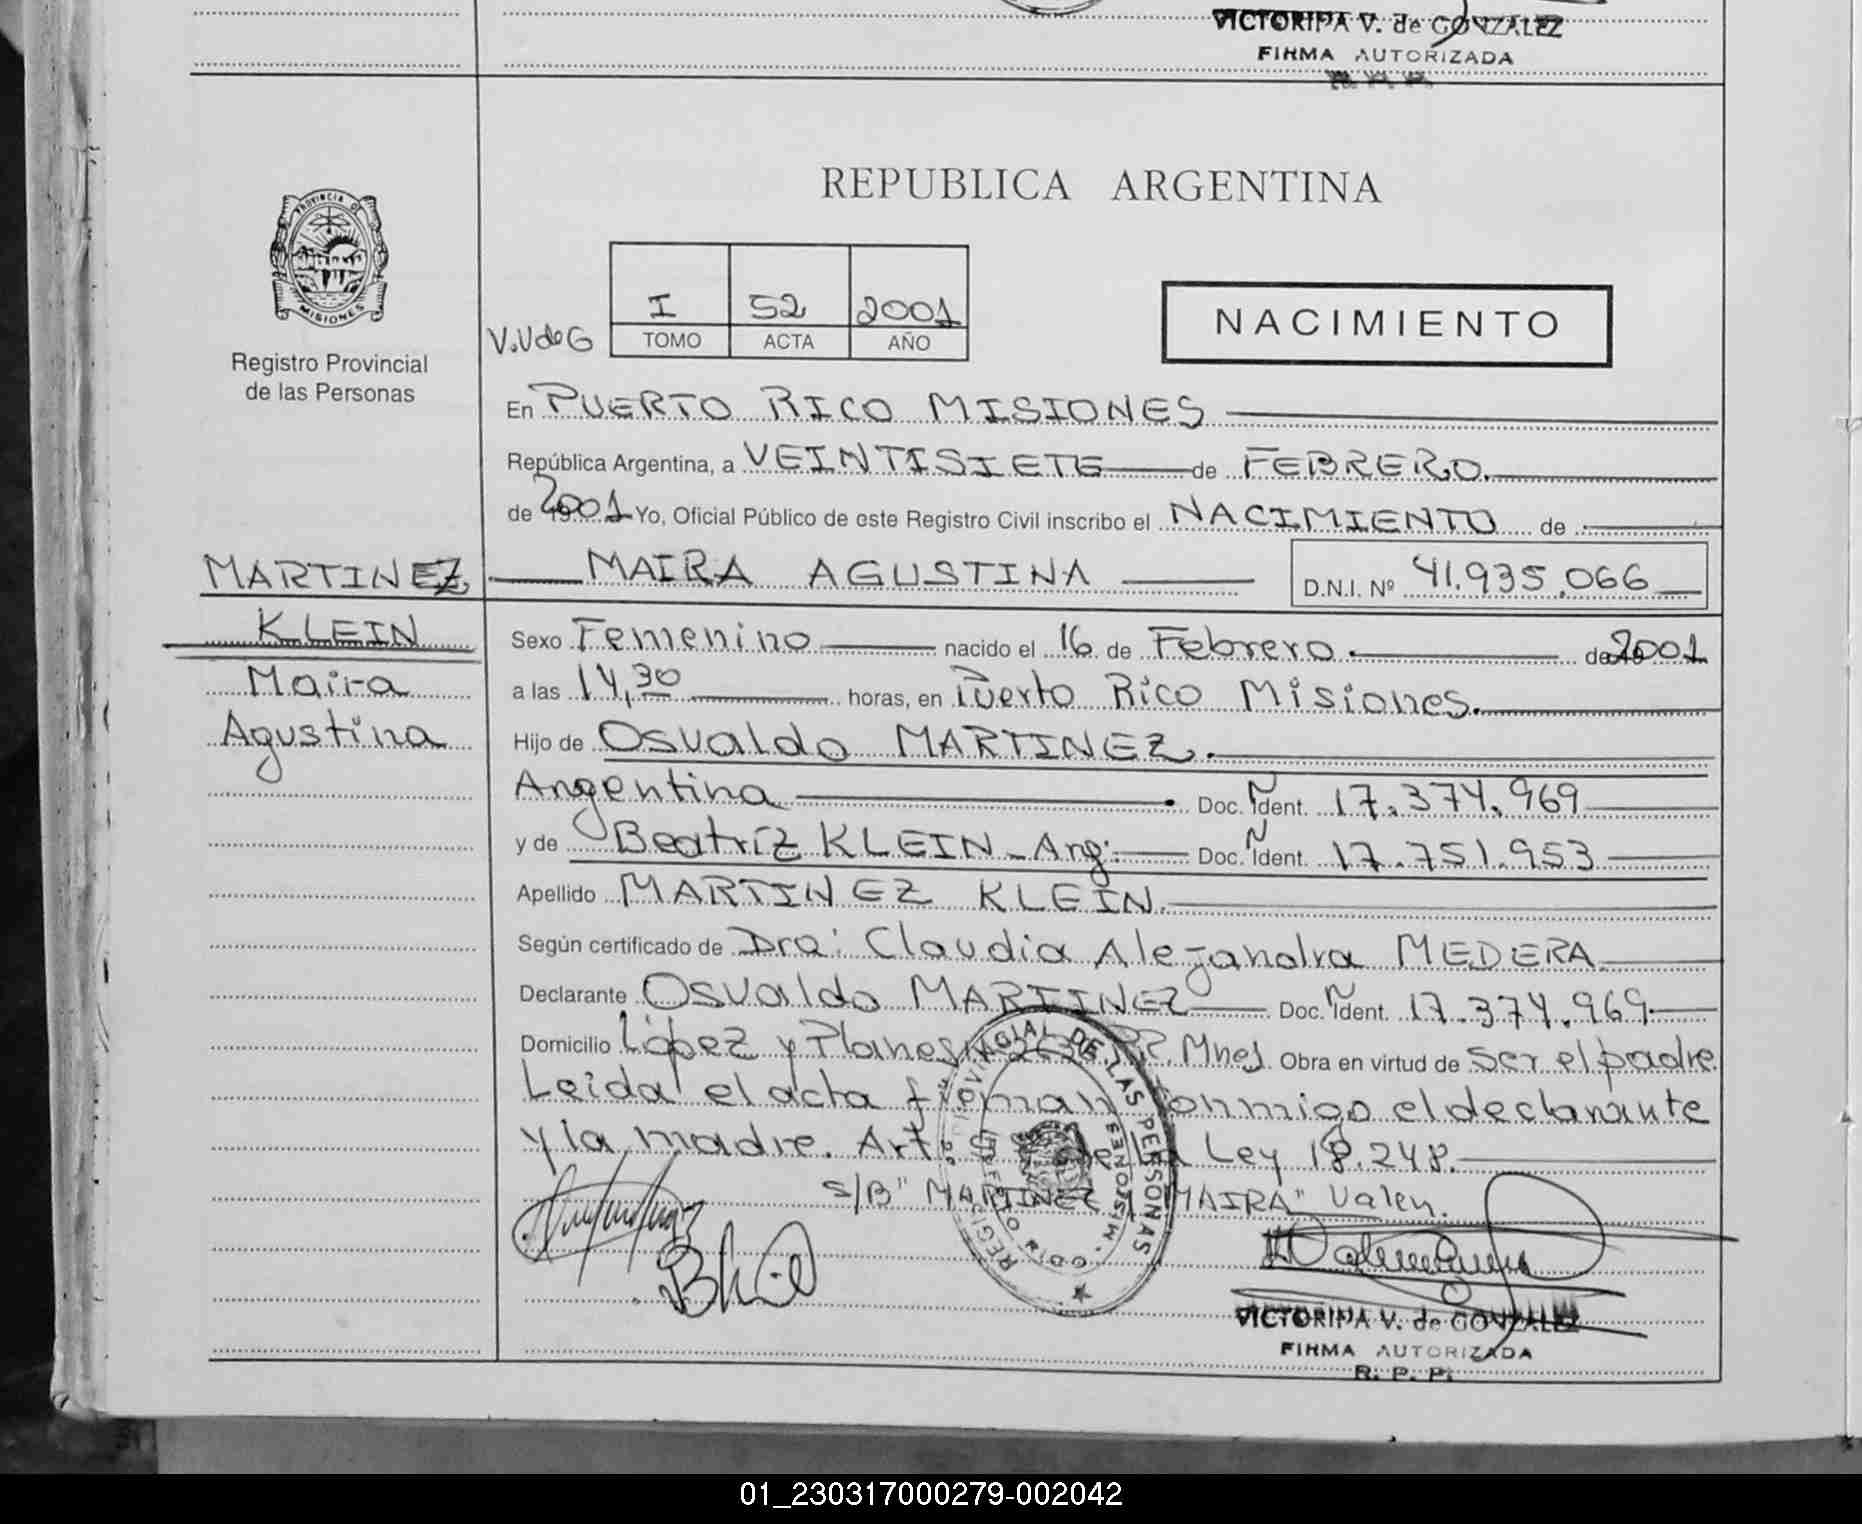 VICTORINA V. de GONZALEZ
FIRMA AUTORIZADA
R. P. P.
REPUBLICA ARGENTINA
PROVINCIA DE
MISIONES
Registro Provincial
de las Personas
V.V de G
I 52 2001
TOMO ACTA AÑO
NACIMIENTO
En PUERTO RICO MISIONES
República Argentina, a VEINTISIETE de FEBRERO.
de 2001 Yo, Oficial Público de este Registro Civil inscribo el NACIMIENTO de
MARTINEZ
MAIRA AGUSTINA D.N.I. Nº 41.935.066
KLEIN
Maira
Agustina
Sexo Femenino nacido el 16 de Febrero. de 2001
a las 14,30 horas, en Puerto Rico Misiones.
Hijo de Osvaldo MARTINEZ.
Argentina Doc. Ident. N 17.374.969
y de Beatríz KLEIN - Arg: Doc. Ident. N 17.751.953
Apellido MARTINEZ KLEIN.
Según certificado de Dra: Claudia Alejandra MEDERA
Declarante Osvaldo MARTINEZ Doc. Ident. N 17.374.969
Domicilio López y Planes Mnes Obra en virtud de ser el padre.
Leida el acta firman conmigo el declarante
y la madre. Art: 5 de la Ley 18.248.
S/B" MARTINEZ "MAIRA" Valen.
REGISTRO PROVINCIAL DE LAS PERSONAS
PUERTO RICO - MISIONES
VICTORINA V. de GONZALEZ
FIRMA AUTORIZADA
R. P. P.
01_230317000279-002042